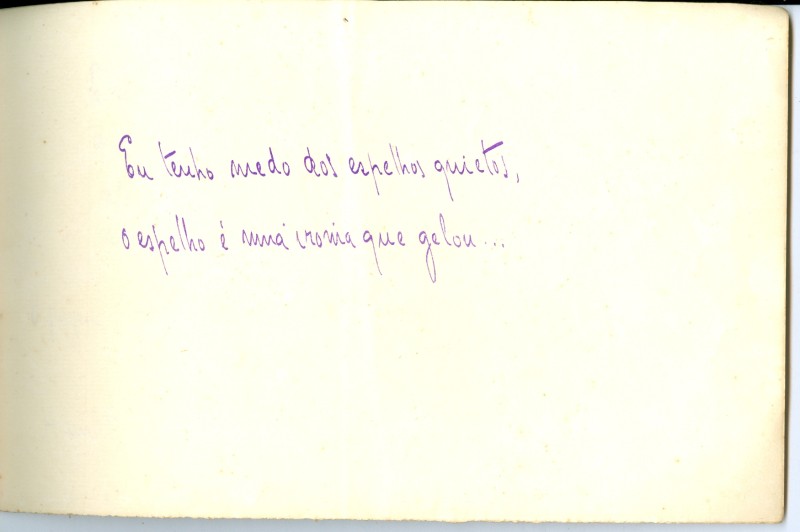 Eu tenho medo dos espelhos quietos,
o espelho é uma ironia que gelou...